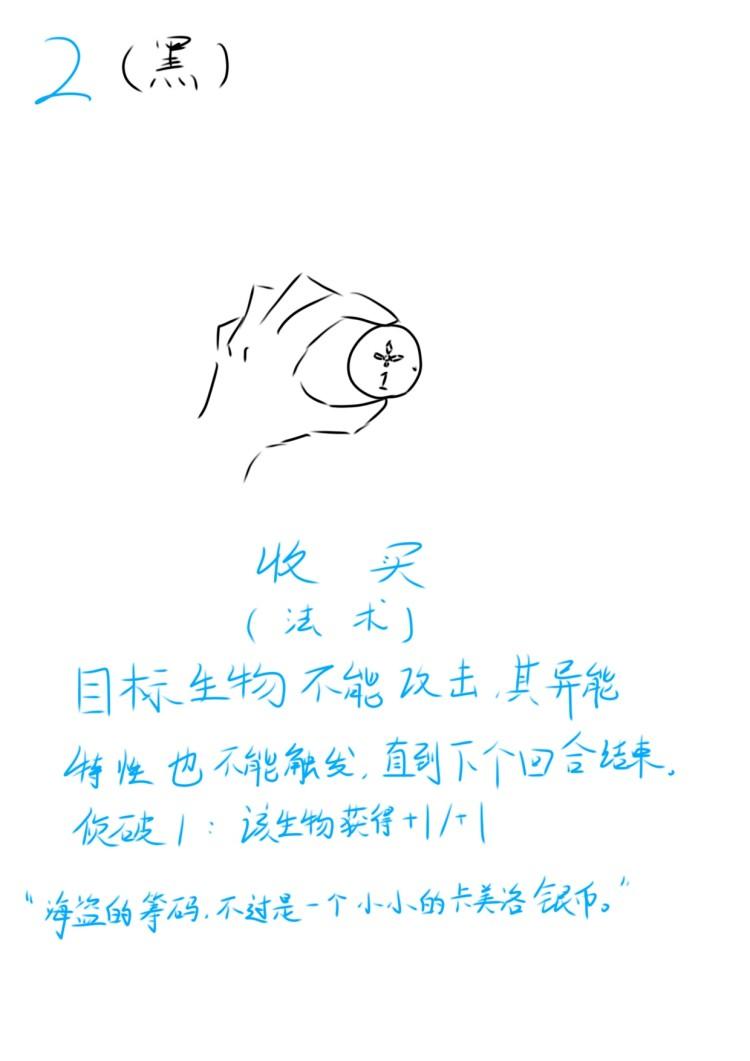 2 (黑)
1
收买
(法术)
目标生物不能攻击,其异能
特性也不能触发,直到下个回合结束。
1:该生物获得+1/+1
"海盗的筹码,不过是一个小小的卡美洛银币。"